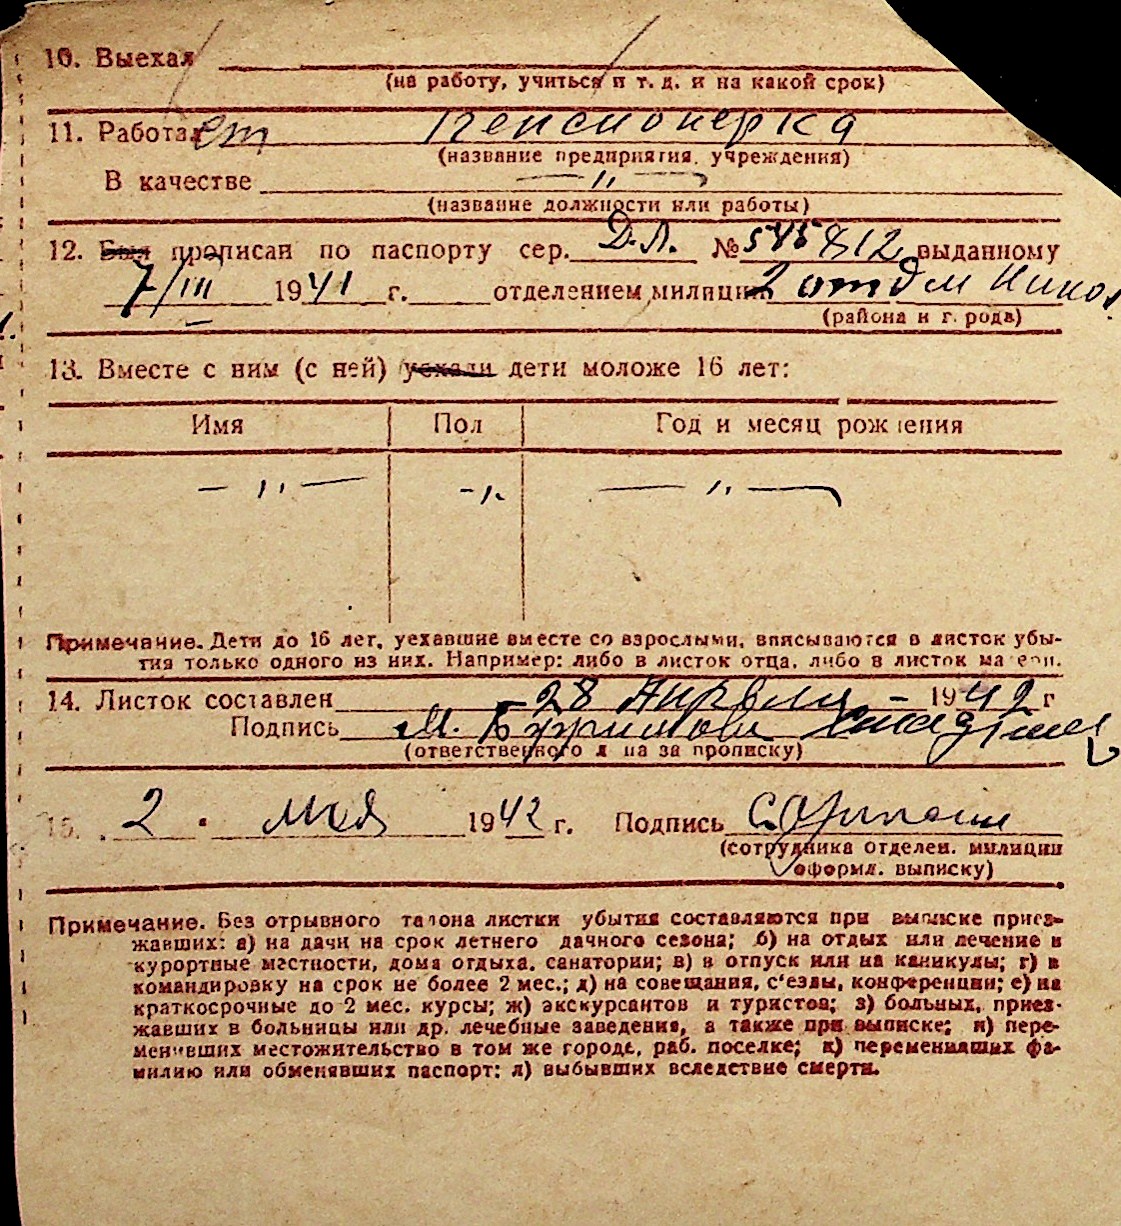 10. Выехал
(на работу, учиться и т. д. и на какой срок)
11. Работает Пенсионерка
(название предприятия, учреждения)
В качестве —〃—
(название должности или работы)
12. Был прописан по паспорту сер. Д.Л. № 545812 выданному
7/III 1941 г. отделением милиции 2 отд м Никол
(района и города)
13. Вместе с ним (с ней) уехали дети моложе 16 лет:
Имя Пол Год и месяц рождения
—〃— —〃— —〃—
Примечание. Дети до 16 лет, уехавшие вместе со взрослыми, вписываются в листок убы-
тия только одного из них. Например: либо в листок отца, либо в листок матери.
14. Листок составлен 28 Апреля — 1942 г
Подпись М.
(ответственного лица за прописку)
15. 2 • мая 1942 г. Подпись
(сотрудника отделен. милиции
оформл. выписку)
Примечание. Без отрывного талона листки убытия составляются при выписке приез-
жавших: а) на дачи на срок летнего дачного сезона; б) на отдых или лечение в
курортные местности, дома отдыха, санатории; в) в отпуск или на каникулы; г) в
командировку на срок не более 2 мес.; д) на совещания, с'езды, конференции; е) на
краткосрочные до 2 мес. курсы; ж) экскурсантов и туристов; з) больных, приез-
жавших в больницы или др. лечебные заведения, а также при выписке; и) пере-
менивших местожительство в том же городе, раб. поселке; к) переменивших фа-
милию или обменявших паспорт; л) выбывших вследствие смерти.